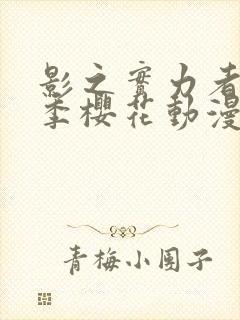 影之實力者
季櫻花動漫
青梅小団子